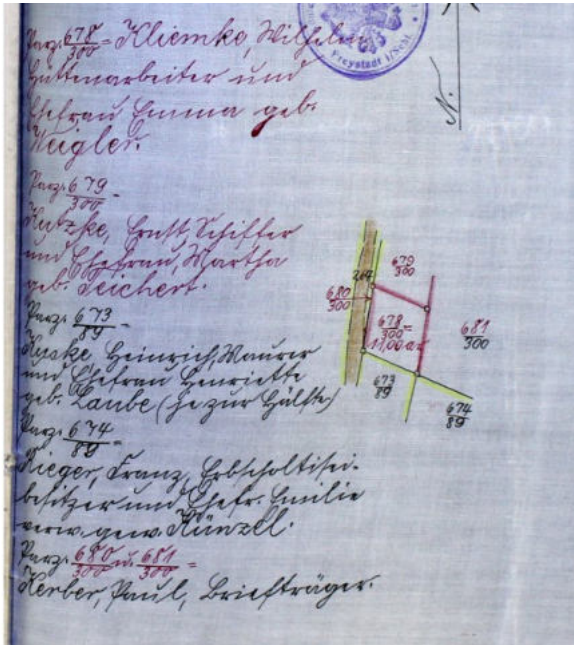 Parz. 678/300 = Kliemke, Wilhelm
Hüttenarbeiter und
Ehefrau Emma geb.
Weigler.
Parz. 679/300 =
Kutzke, Ernst, Schiffer
und Ehefrau, Martha
geb. Teichert.
Parz. 673/89 =
Kuske, Heinrich, Maurer
und Ehefrau Henriette
geb. Laube (je zur Hälfte)
Parz. 674/89 =
Rieger, Franz, Erbscholtisei-
besitzer und Ehefr. Emilie
verw. gew. Künzel.
Parz. 680/300 u. 681/300 =
Kerber, Paul, Briefträger.
Freystadt i/Schl.
N.
679/300
264
680/300
678/300 =
11,00 ar
681/300
673/89
674/89